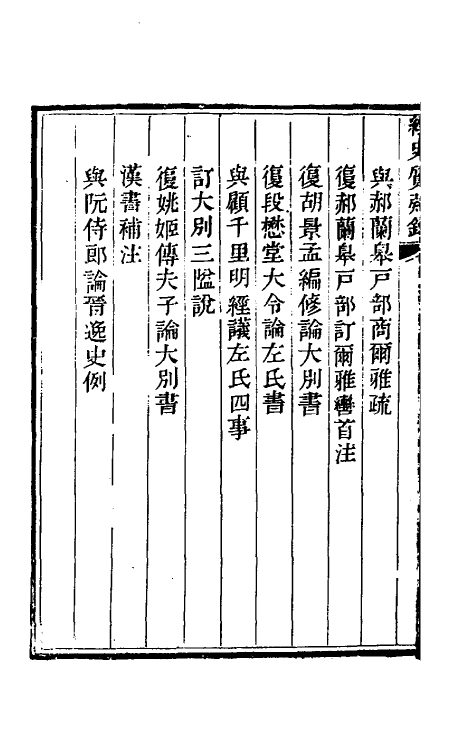 與郝蘭皋戶部商爾雅疏
復郝蘭皋戶部訂爾雅轡首注
復胡景孟編修論大別書
復段懋堂大令論左氏書
與顧千里明經議左氏四事
訂大別三隘說
復姚姬傳夫子論大別書
漢書補注
與阮侍郎論晉逸史例